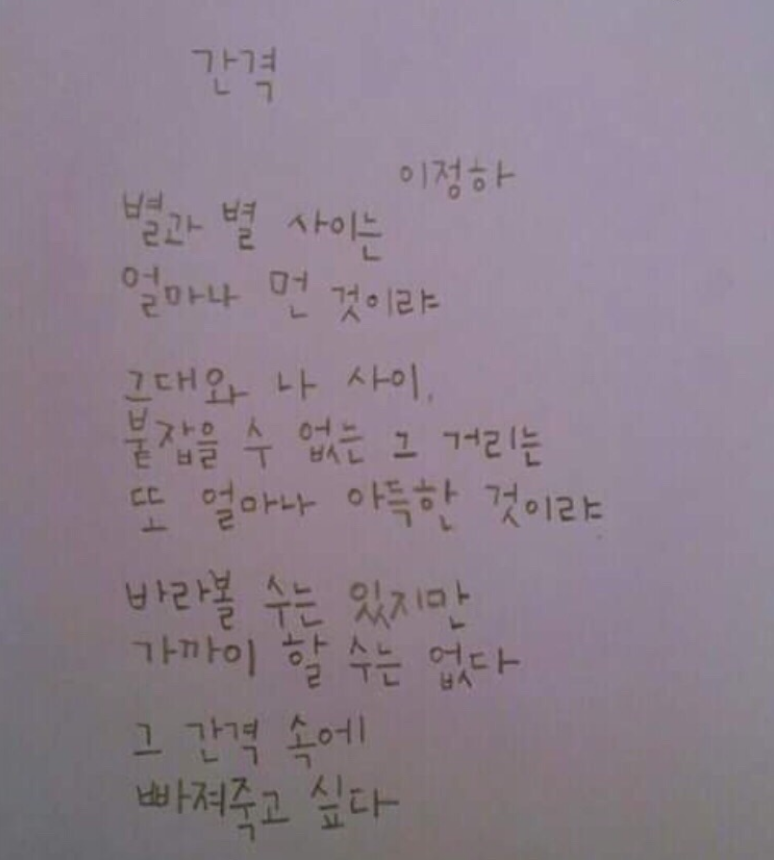 간격
이정하
별과 별 사이는
얼마나 먼 것이랴
그대와 나 사이,
붙잡을 수 없는 그 거리는
또 얼마나 아득한 것이랴
바라볼 수는 있지만
가까이 할 수는 없다
그 간격 속에
빠져죽고 싶다